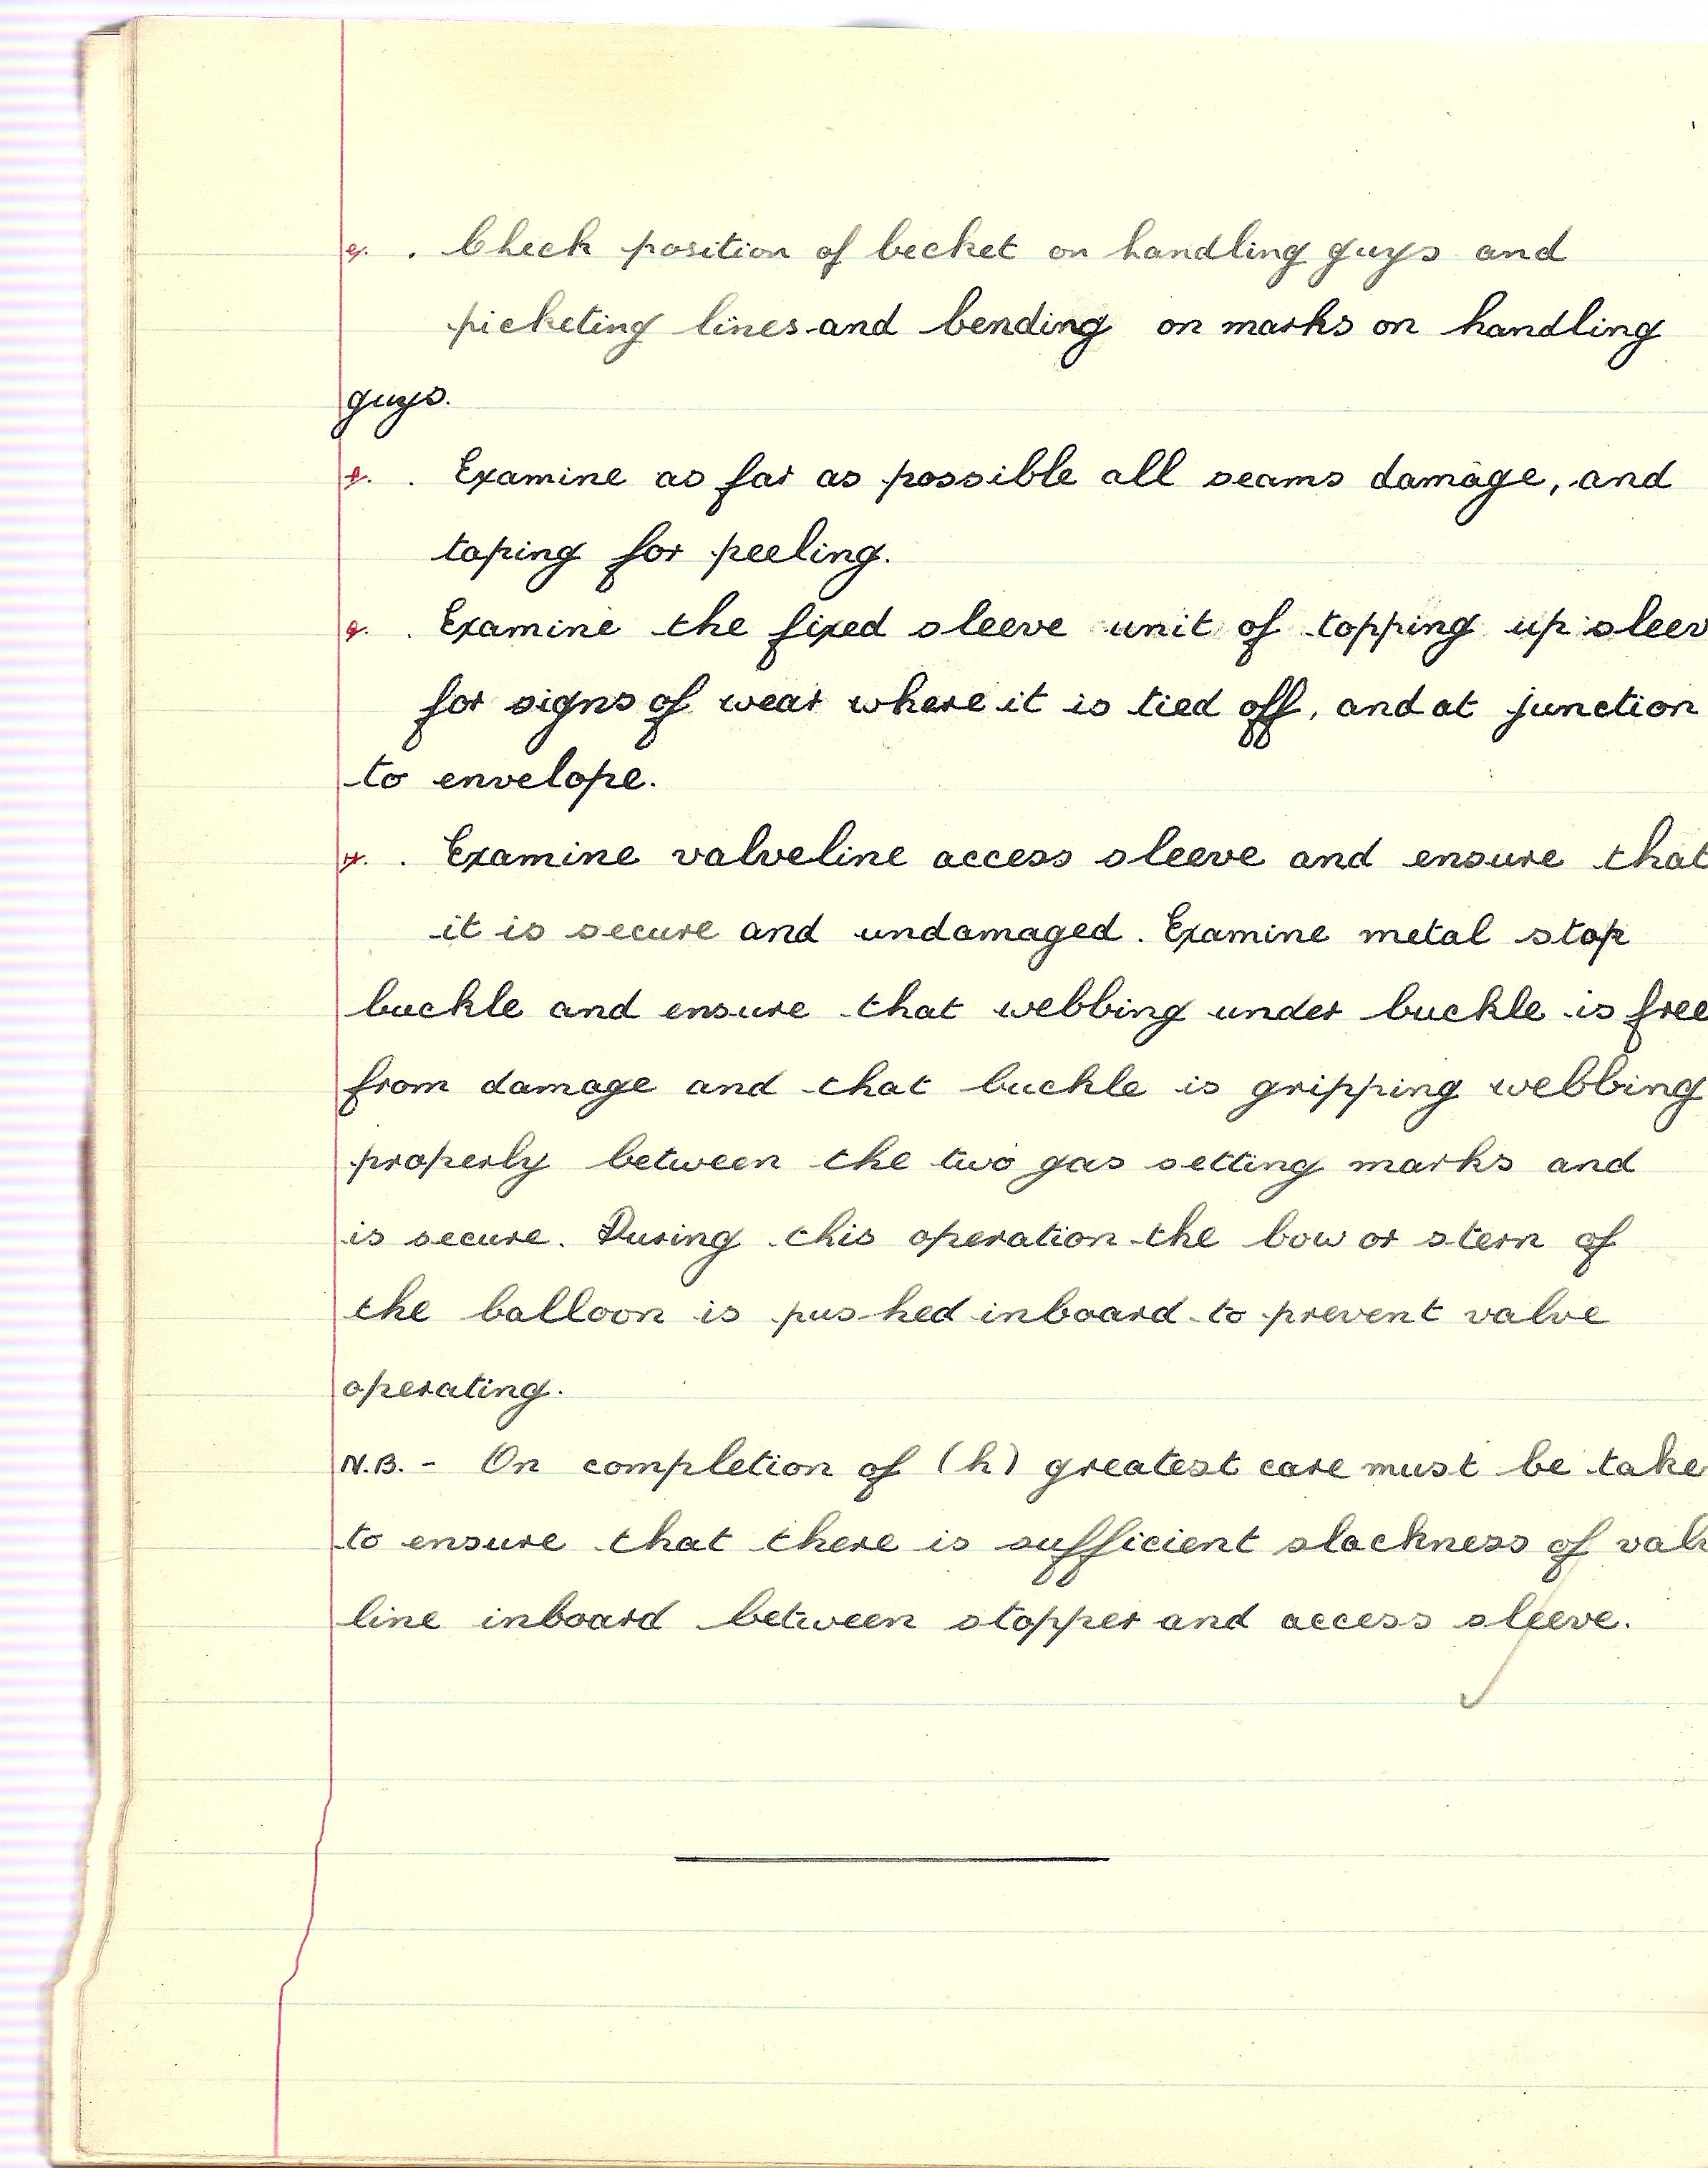 e. . Check position of becket on handling guys and
picketing lines and bending on marks on handling
guys.
f. . Examine as far as possible all seams damage, and
taping for peeling.
g. . Examine the fixed sleeve unit of topping up sleev
for signs of wear where it is tied off, and at junction
to envelope.
H. . Examine valveline access sleeve and ensure that
it is secure and undamaged. Examine metal stop
buckle and ensure that webbing under buckle is free
from damage and that buckle is gripping webbing
properly between the two gas setting marks and
is secure. During this operation the bow or stern of
the balloon is pushed inboard to prevent valve
operating.
N.B. - On completion of (h) greatest care must be take
to ensure that there is sufficient slackness of valv
line inboard between stopper and access sleeve.